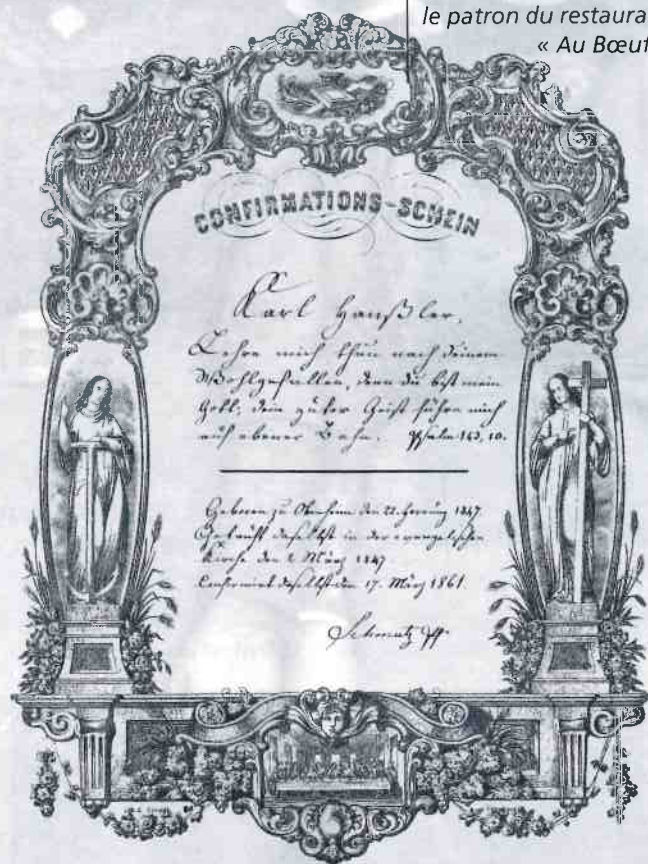 le patron du restaura
« Au Bœuf
CONFIRMATIONS-SCHEIN
Karl Hanßler.
Lehre mich thun nach deinem
Wohlgefallen, denn du bist mein
Gott; dein guter Geist führe mich
auf ebener Bahn. Psalm 143, 10.
Geboren zu den 22. Hornung 1847
Getauft daselbst in der evangelischen
Kirche den 2. März 1847.
Confirmirt daselbst den 17. März 1861.
Schmutz